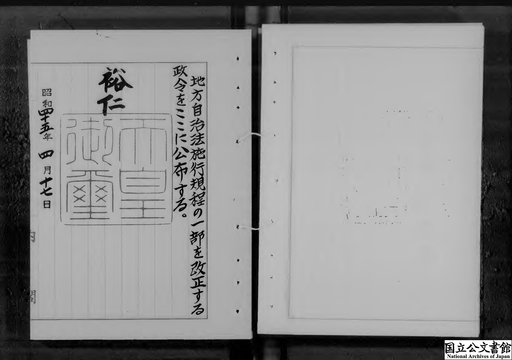 地方自治法施行規程の一部を改正する
政令をここに公布する。
裕仁
昭和四十五年四月十七日
天皇御璽
内閣
国立公文書館
National Archives of Japan